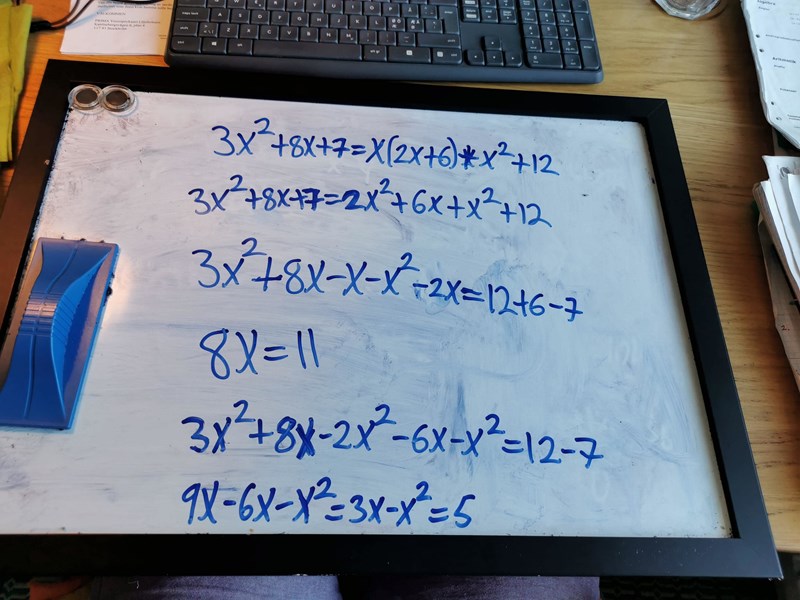 3x²+8x+7=x(2x+6)*x²+12
3x²+8x+7=2x²+6x+x²+12
3x²+8x-x-x²-2x=12+6-7
8x=11
3x²+8x-2x²-6x-x²=12-7
9x-6x-x²=3x-x²=5